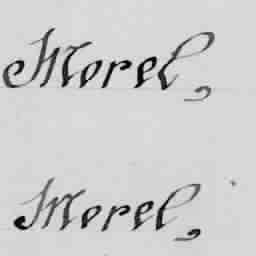 Morel,
Morel,